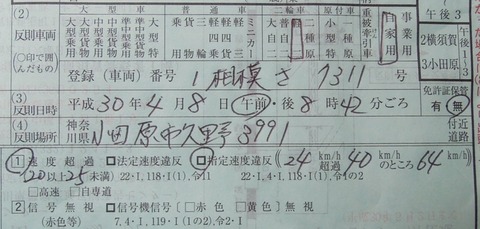 (2)
反則車両
(○印で囲んだもの)
大型 中型 準中型 普通車
乗用 貨物 三輪 軽四 軽三 ミニカー
二輪車 大自二 普自二
原付車 小二 一種
重被牽引車 自家用 事業用
登録(車両)番号 1相模さ7311号
午後3
2横須賀
3小田原
(3)
反則日時
平成30年4月8日 午前・後8時42分ごろ
免許証保管
有 無
(4)
反則場所
神奈川県小田原市久野3991
付近道路
1 速度超過 □法定速度違反 □指定速度違反 (24km/h超過 40km/hのところ64km/h)
(20以上25未満) 22・1,118・I(1),令11 22・1,4・1,118・I(1),令1の2
□高速 □自専道
2 信号無視 □信号機信号(□赤色 □黄色)無視
(赤色等) 7.4・I,119・I(1の2),令2・I